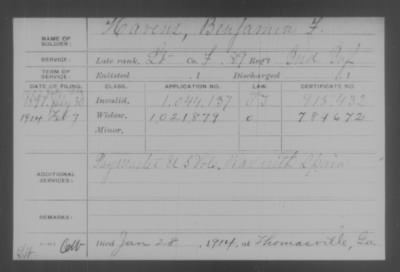 NAME OF SOLDIER: Havens, Benjamin F.
SERVICE: Late rank, Lt Co. F, 87 Reg't Ind Inf
TERM OF SERVICE: Enlisted , 1 Discharged , 1
DATE OF FILING. CLASS. APPLICATION NO. LAW. CERTIFICATE NO.
1891 July 30 Invalid, 1,044,137 915,432
1914 Feb 7 Widow, 1,021,879 0 789672
Minor,
ADDITIONAL SERVICES: Paymaster U S Vols, War with Spain
REMARKS:
Died Jan 28, 1914, at Thomasville, Ga